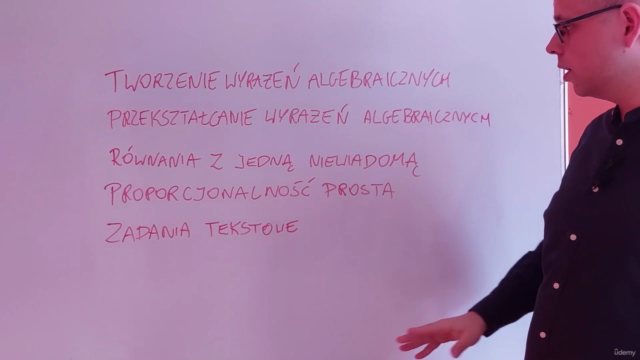 TWORZENIE WYRAŻEŃ ALGEBRAICZNYCH
PRZEKSZTAŁCANIE WYRAŻEŃ ALGEBRAICZNYCH
RÓWNANIA Z JEDNĄ NIEWIADOMĄ
PROPORCJONALNOŚĆ PROSTA
ZADANIA TEKSTOWE
ûdemy